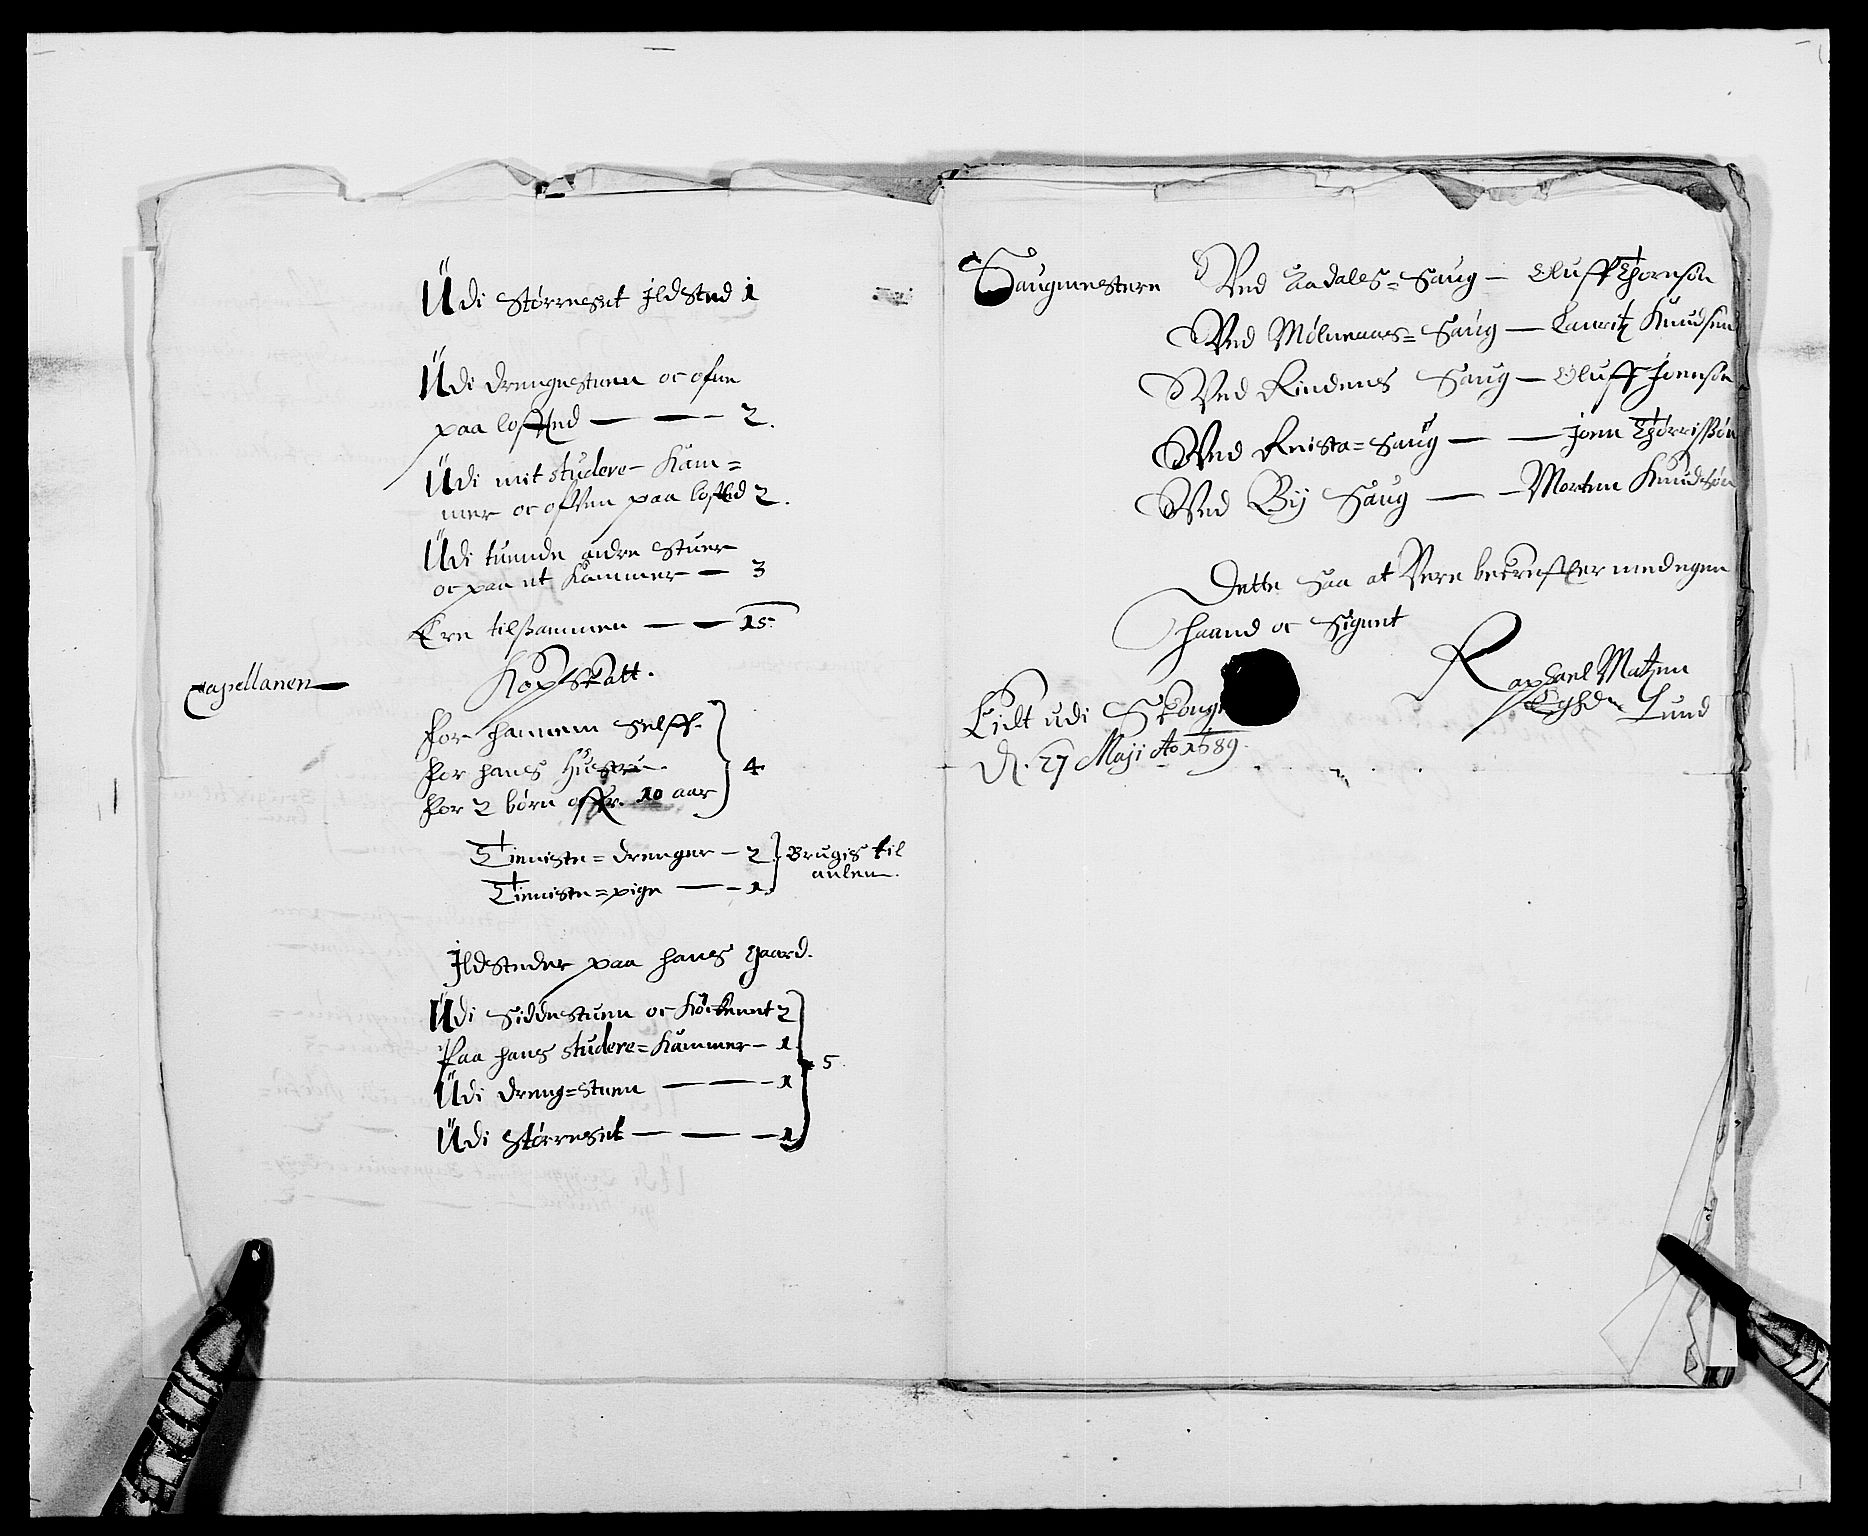 Udi Størreset Ildsted 1
Udi drengestuen oc ofne
paa lofted — — — 2.
Udi mit studere-Kam=
mer oc ofven paa lofted 2.
Udi tuende andre Stuer
oc paa et Kammer — 3
Ere tilsammen — — 15.
Capellanen
Kopskatt.
For hannem Selff.
For hans Hustru.
For 2 børn offr. 10 aar
4
Tieniste=drenger — 2
Tieniste=pige — — 1.
Brugis til
aulen.
Ildsteder paa hans gaard.
Udi Siddestuen oc Kökkenet 2
Paa hans studere=Kammer — 1
Udi dreng=stuen — — — 1
Udi Størreset — — — 1
5.
Saugmestere
Ved Aadals=Saug — Oluff Thornsøn
Ved Mølneaas=Saug — Lauritz Knudsøn
Ved Rindens Saug — Oluff Joensøn
Ved Knista=Saug — — Joen Thorrissøn
Ved Bÿ Saug — — Morten Knudsøn
Dette Saa at Vere bekrefter med egen
haand oc Signet
Raphael Matzen
Lund
Lidt udi Skougn
D. 27 Maji Ao 1689.